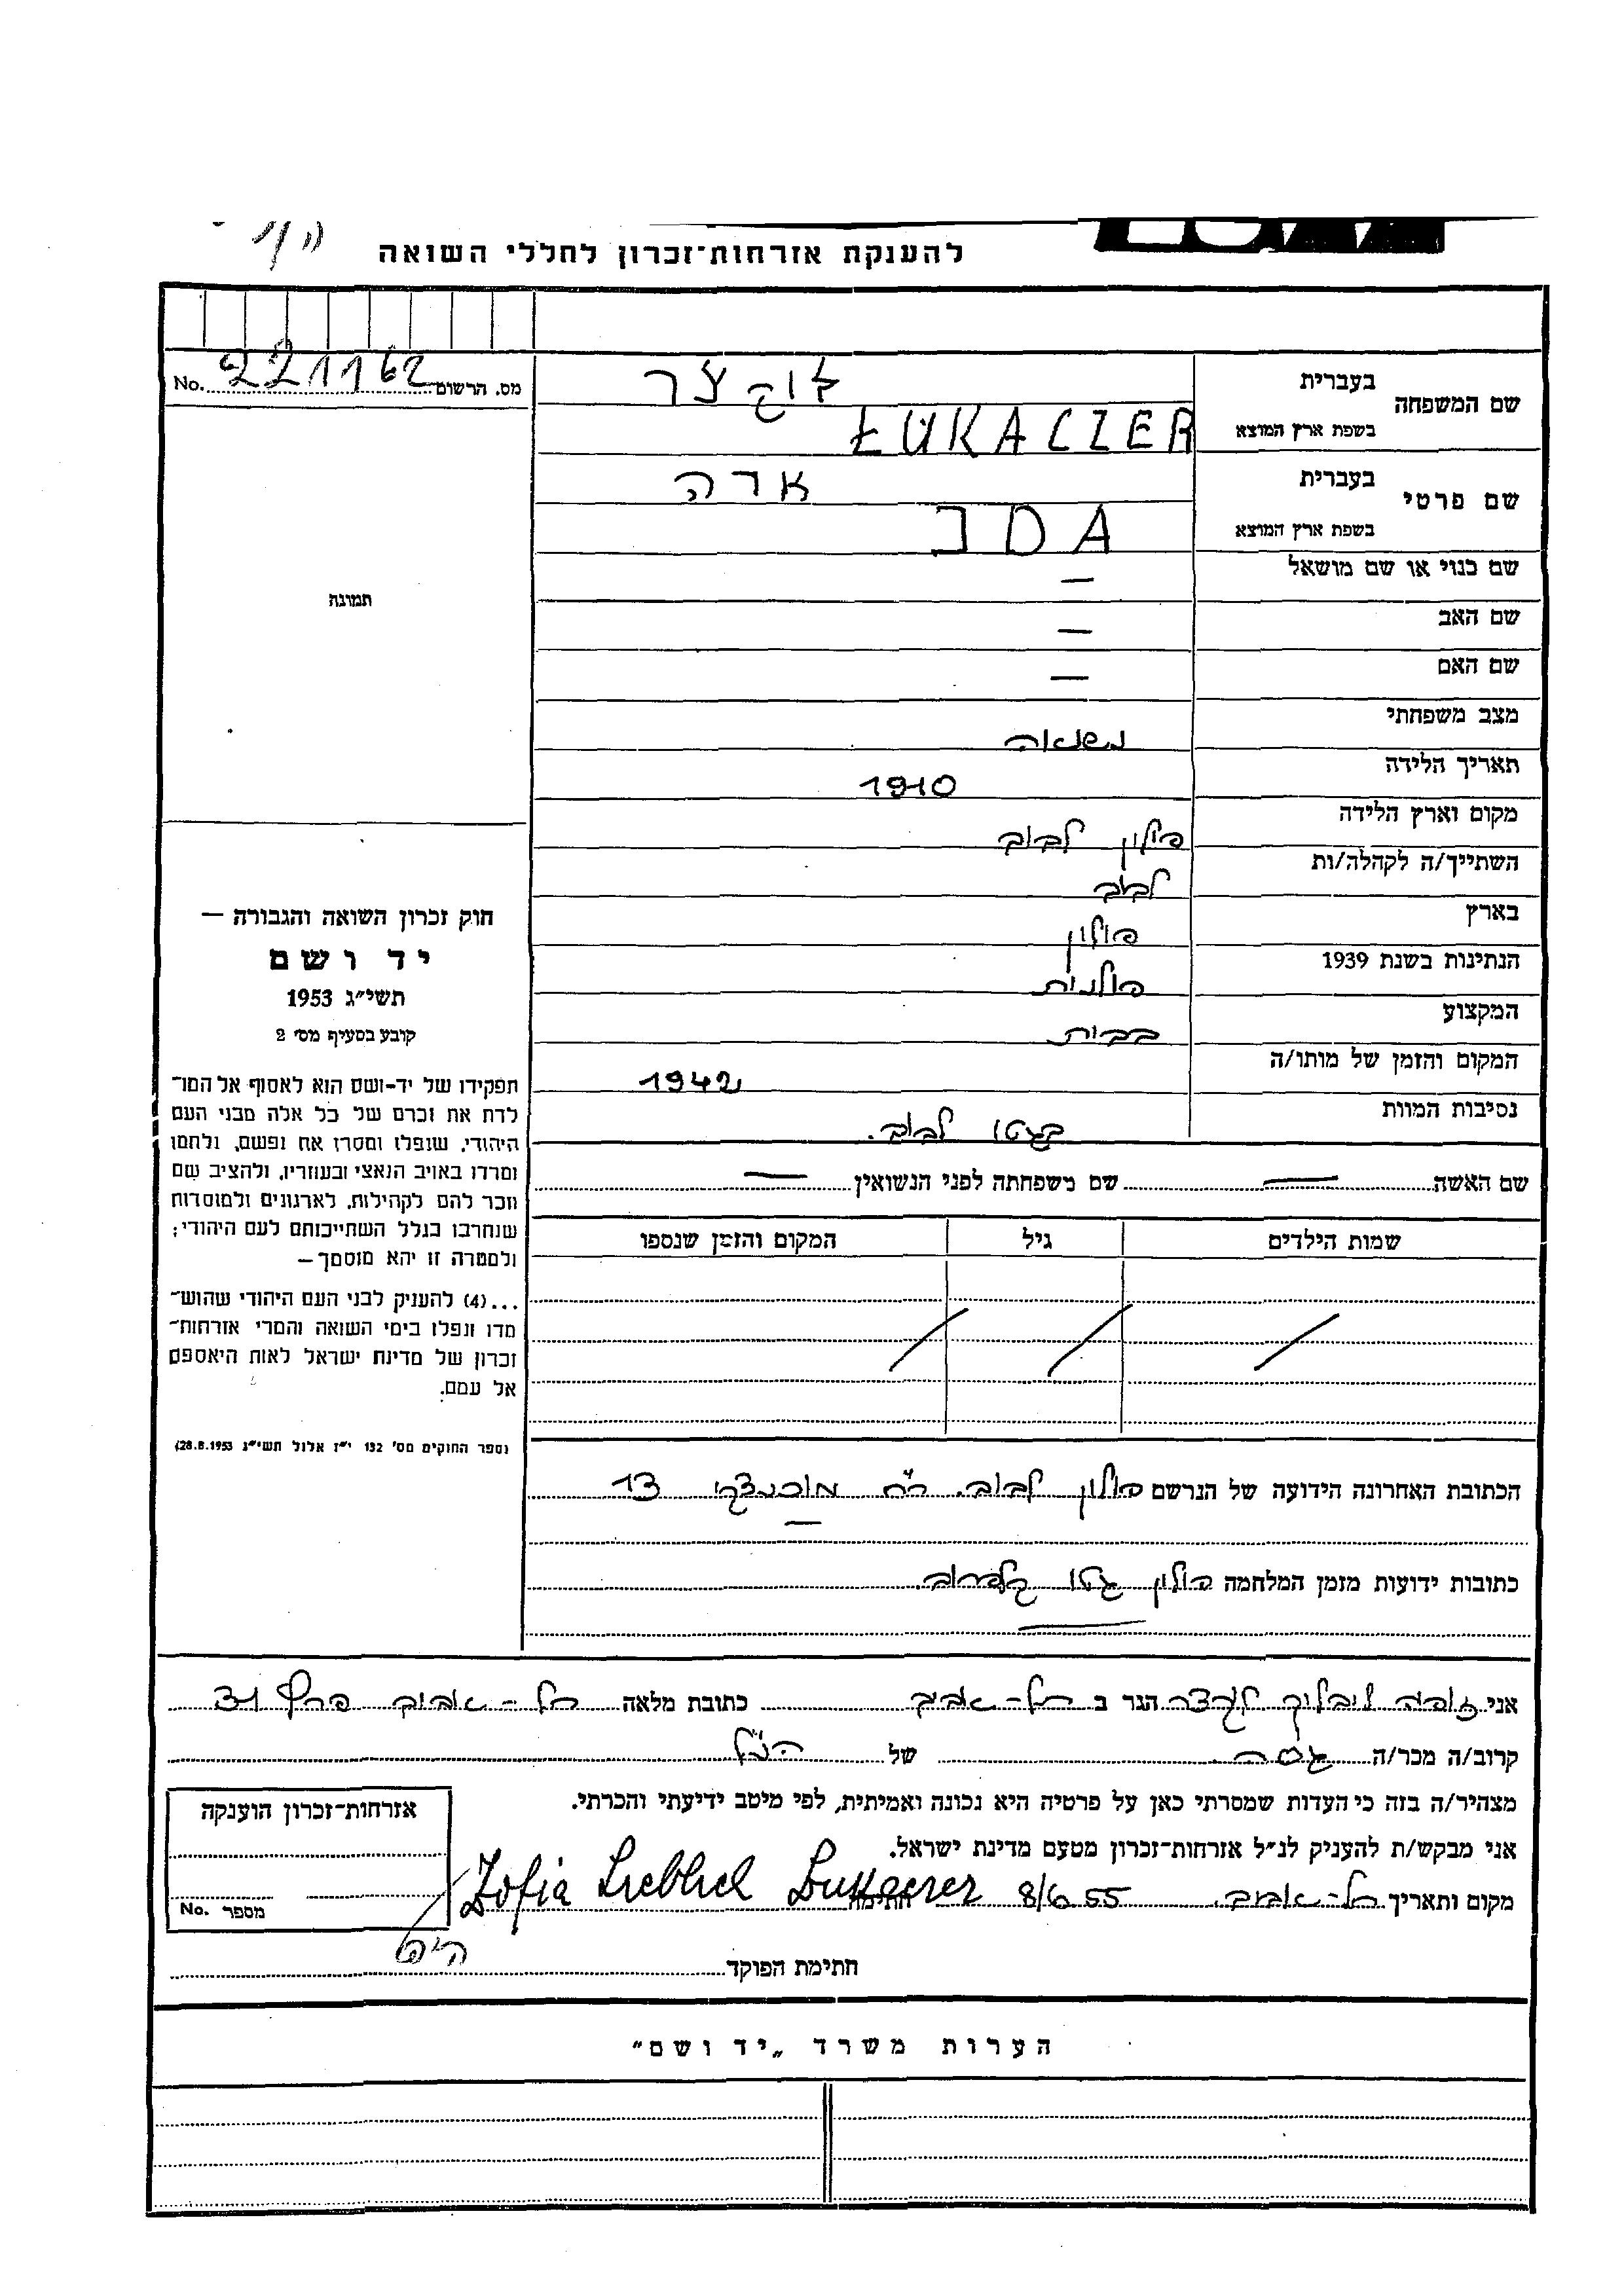 להענקת אזרחות־זכרון לחללי השואה
מס. הרשום 221162 No.
שם המשפחה
בעברית
לוקצר
בשפת ארץ המוצא
ŁUKACZER
שם פרטי
בעברית
אדה
בשפת ארץ המוצא
IDA
שם כנוי או שם מושאל —
שם האב —
שם האם —
מצב משפחתי נשואה
תאריך הלידה 1910
מקום וארץ הלידה פולין לבוב
השתייך/ה לקהלה/ות לבוב
בארץ פולין
הנתינות בשנת 1939 פולנית
המקצוע
המקום והזמן של מותו/ה 1942
נסיבות המוות בגטו לבוב.
שם האשה — שם משפחתה לפני הנשואין —
שמות הילדים גיל המקום והזמן שנספו
הכתובת האחרונה הידועה של הנרשם פולין לבוב. רח' 13
כתובות ידועות מזמן המלחמה פולין גטו
תמונה
חוק זכרון השואה והגבורה —
יד ושם
תשי״ג 1953
קובע בסעיף מסי 2
תפקידו של יד-ושם הוא לאסוף אל המו־
לדת את זכרם של כל אלה מבני העם
היהודי, שנפלו ומסרו את נפשם, נלחמו
ומרדו באויב הנאצי ובעוזריו, ולהציב שם
וזכר להם לקהילות, לארגונים ולמוסדות
שנחרבו בגלל השתייכותם לעם היהודי;
ולמטרה זו יהא מוסמך—
...(4) להעניק לבני העם היהודי שהוש־
מדו ונפלו בימי השואה והמרי אזרחות־
זכרון של מדינת ישראל לאות היאספם
אל עמם.
(ספר החוקים מס׳ 132 י״ז אלול תשי״ג 28.8.1953)
אני הגר ב תל-אביב כתובת מלאה תל-אביב 31
קרוב/ה מכר/ה גיסה של הנ״ל
מצהיר/ה בזה כי העדות שמסרתי כאן על פרטיה היא נכונה ואמיתית, לפי מיטב ידיעתי והכרתי.
אני מבקש/ת להעניק לנ״ל אזרחות־זכרון מטעם מדינת ישראל.
מקום ותאריך תל-אביב 8/6 55 חתימה Zofia
חתימת הפוקד
אזרחות־זכרון הוענקה
מספר No.
הערות משרד „יד ושם״